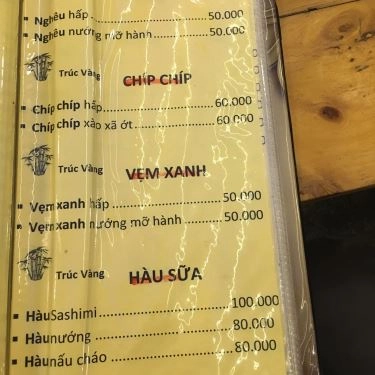 Nghêu hấp 50.000
Nghêu nướng mỡ hành 50.000
Trúc Vàng CHÍP CHÍP
Chíp chíp hấp 60.000
Chíp chíp xào xã ớt 60.000
Trúc Vàng VẸM XANH
Vẹm xanh hấp 50.000
Vẹm xanh nướng mỡ hành 50.000
Trúc Vàng HÀU SỮA
Hàu Sashimi 100.000
Hàu nướng 80.000
Hàu nấu cháo 80.000